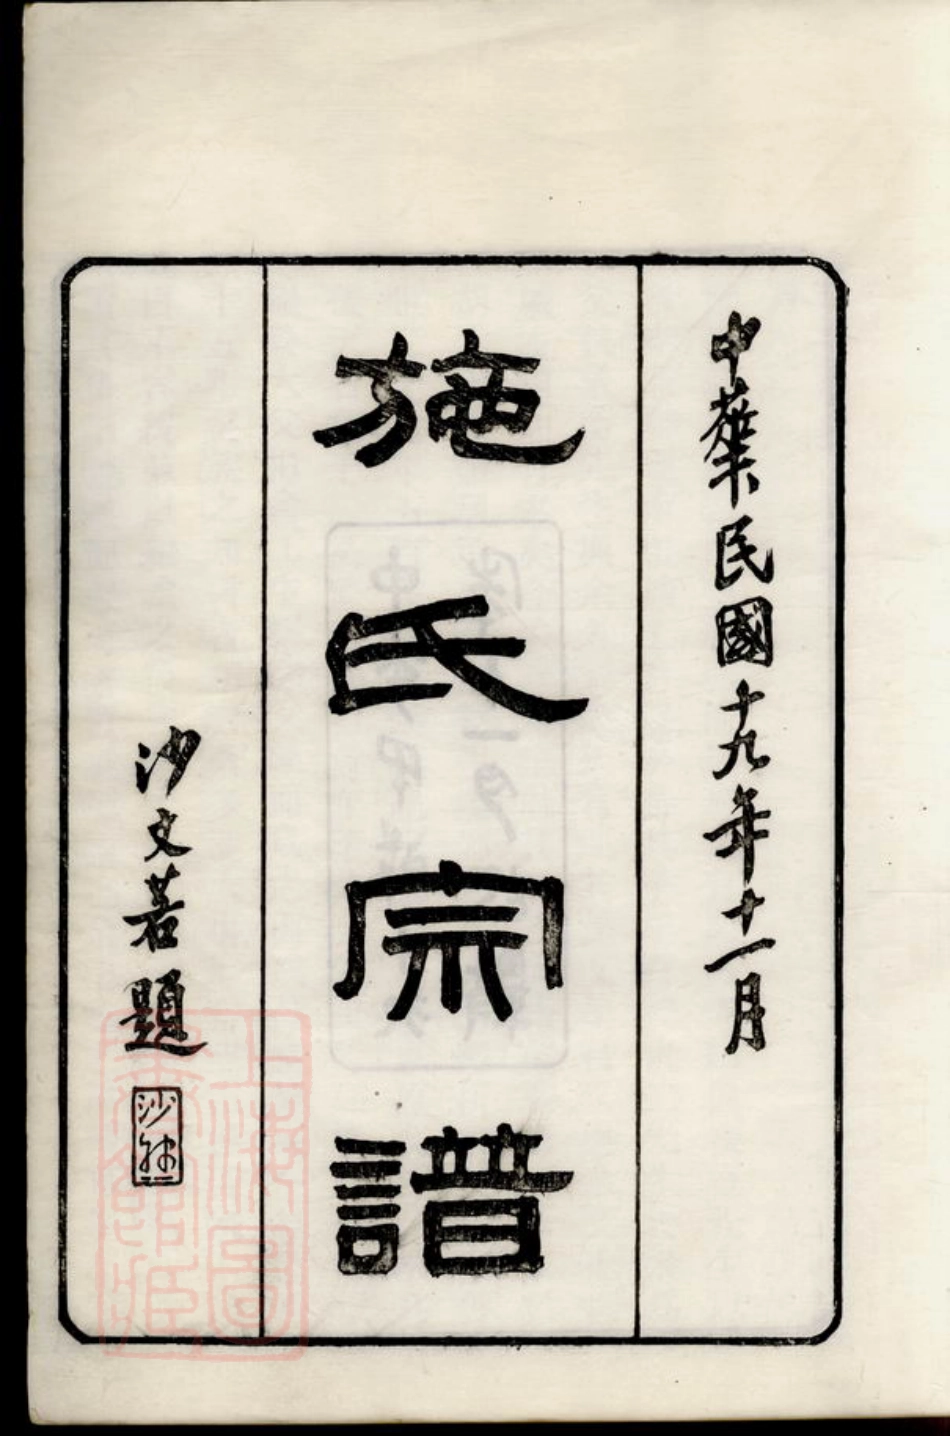 中華民國十九年十一月
施氏宗譜
沙文若題
上海圖
書館藏